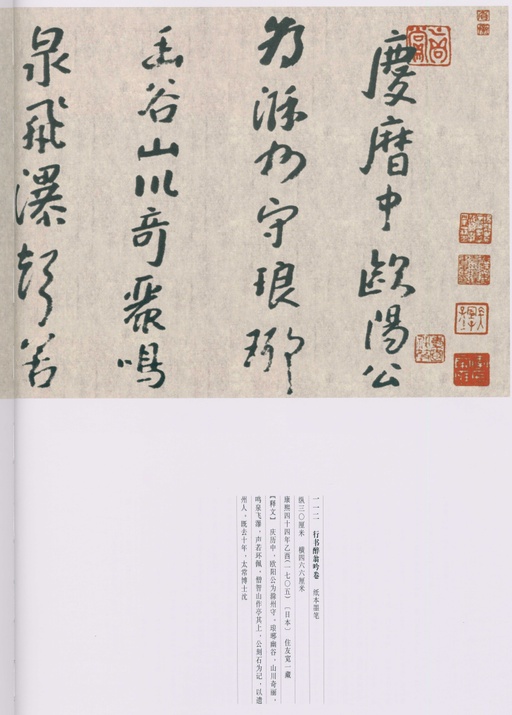 慶曆中歐陽公
為滁州守琅琊
幽谷山川奇麗鳴
泉飛瀑聲若
一一二 行书醉翁吟卷 纸本墨笔
纵三〇厘米 横四六六厘米
康熙四十四年乙酉(一七〇五) 〔日本〕 住友宽一藏
【释文】 庆历中，欧阳公为滁州守，琅琊幽谷，山川奇丽，
鸣泉飞瀑，声若环佩，僧智山作亭其上，公刻石为记，以遗
州人，既去十年，太常博士沈